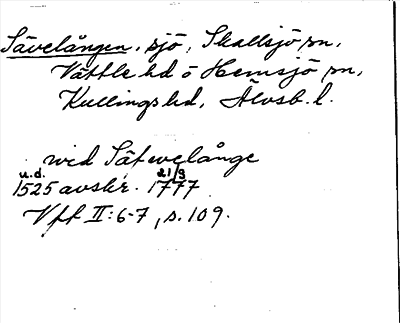 Sävelången, sjö, Skallsjö sn,
Vättle hd o Hemsjö sn,
Kullings hd, Älvsb. l.
wid Säfwelånge
u.d. 21/3
1525 avskr. 1777
Vff II:6-7, s. 109.